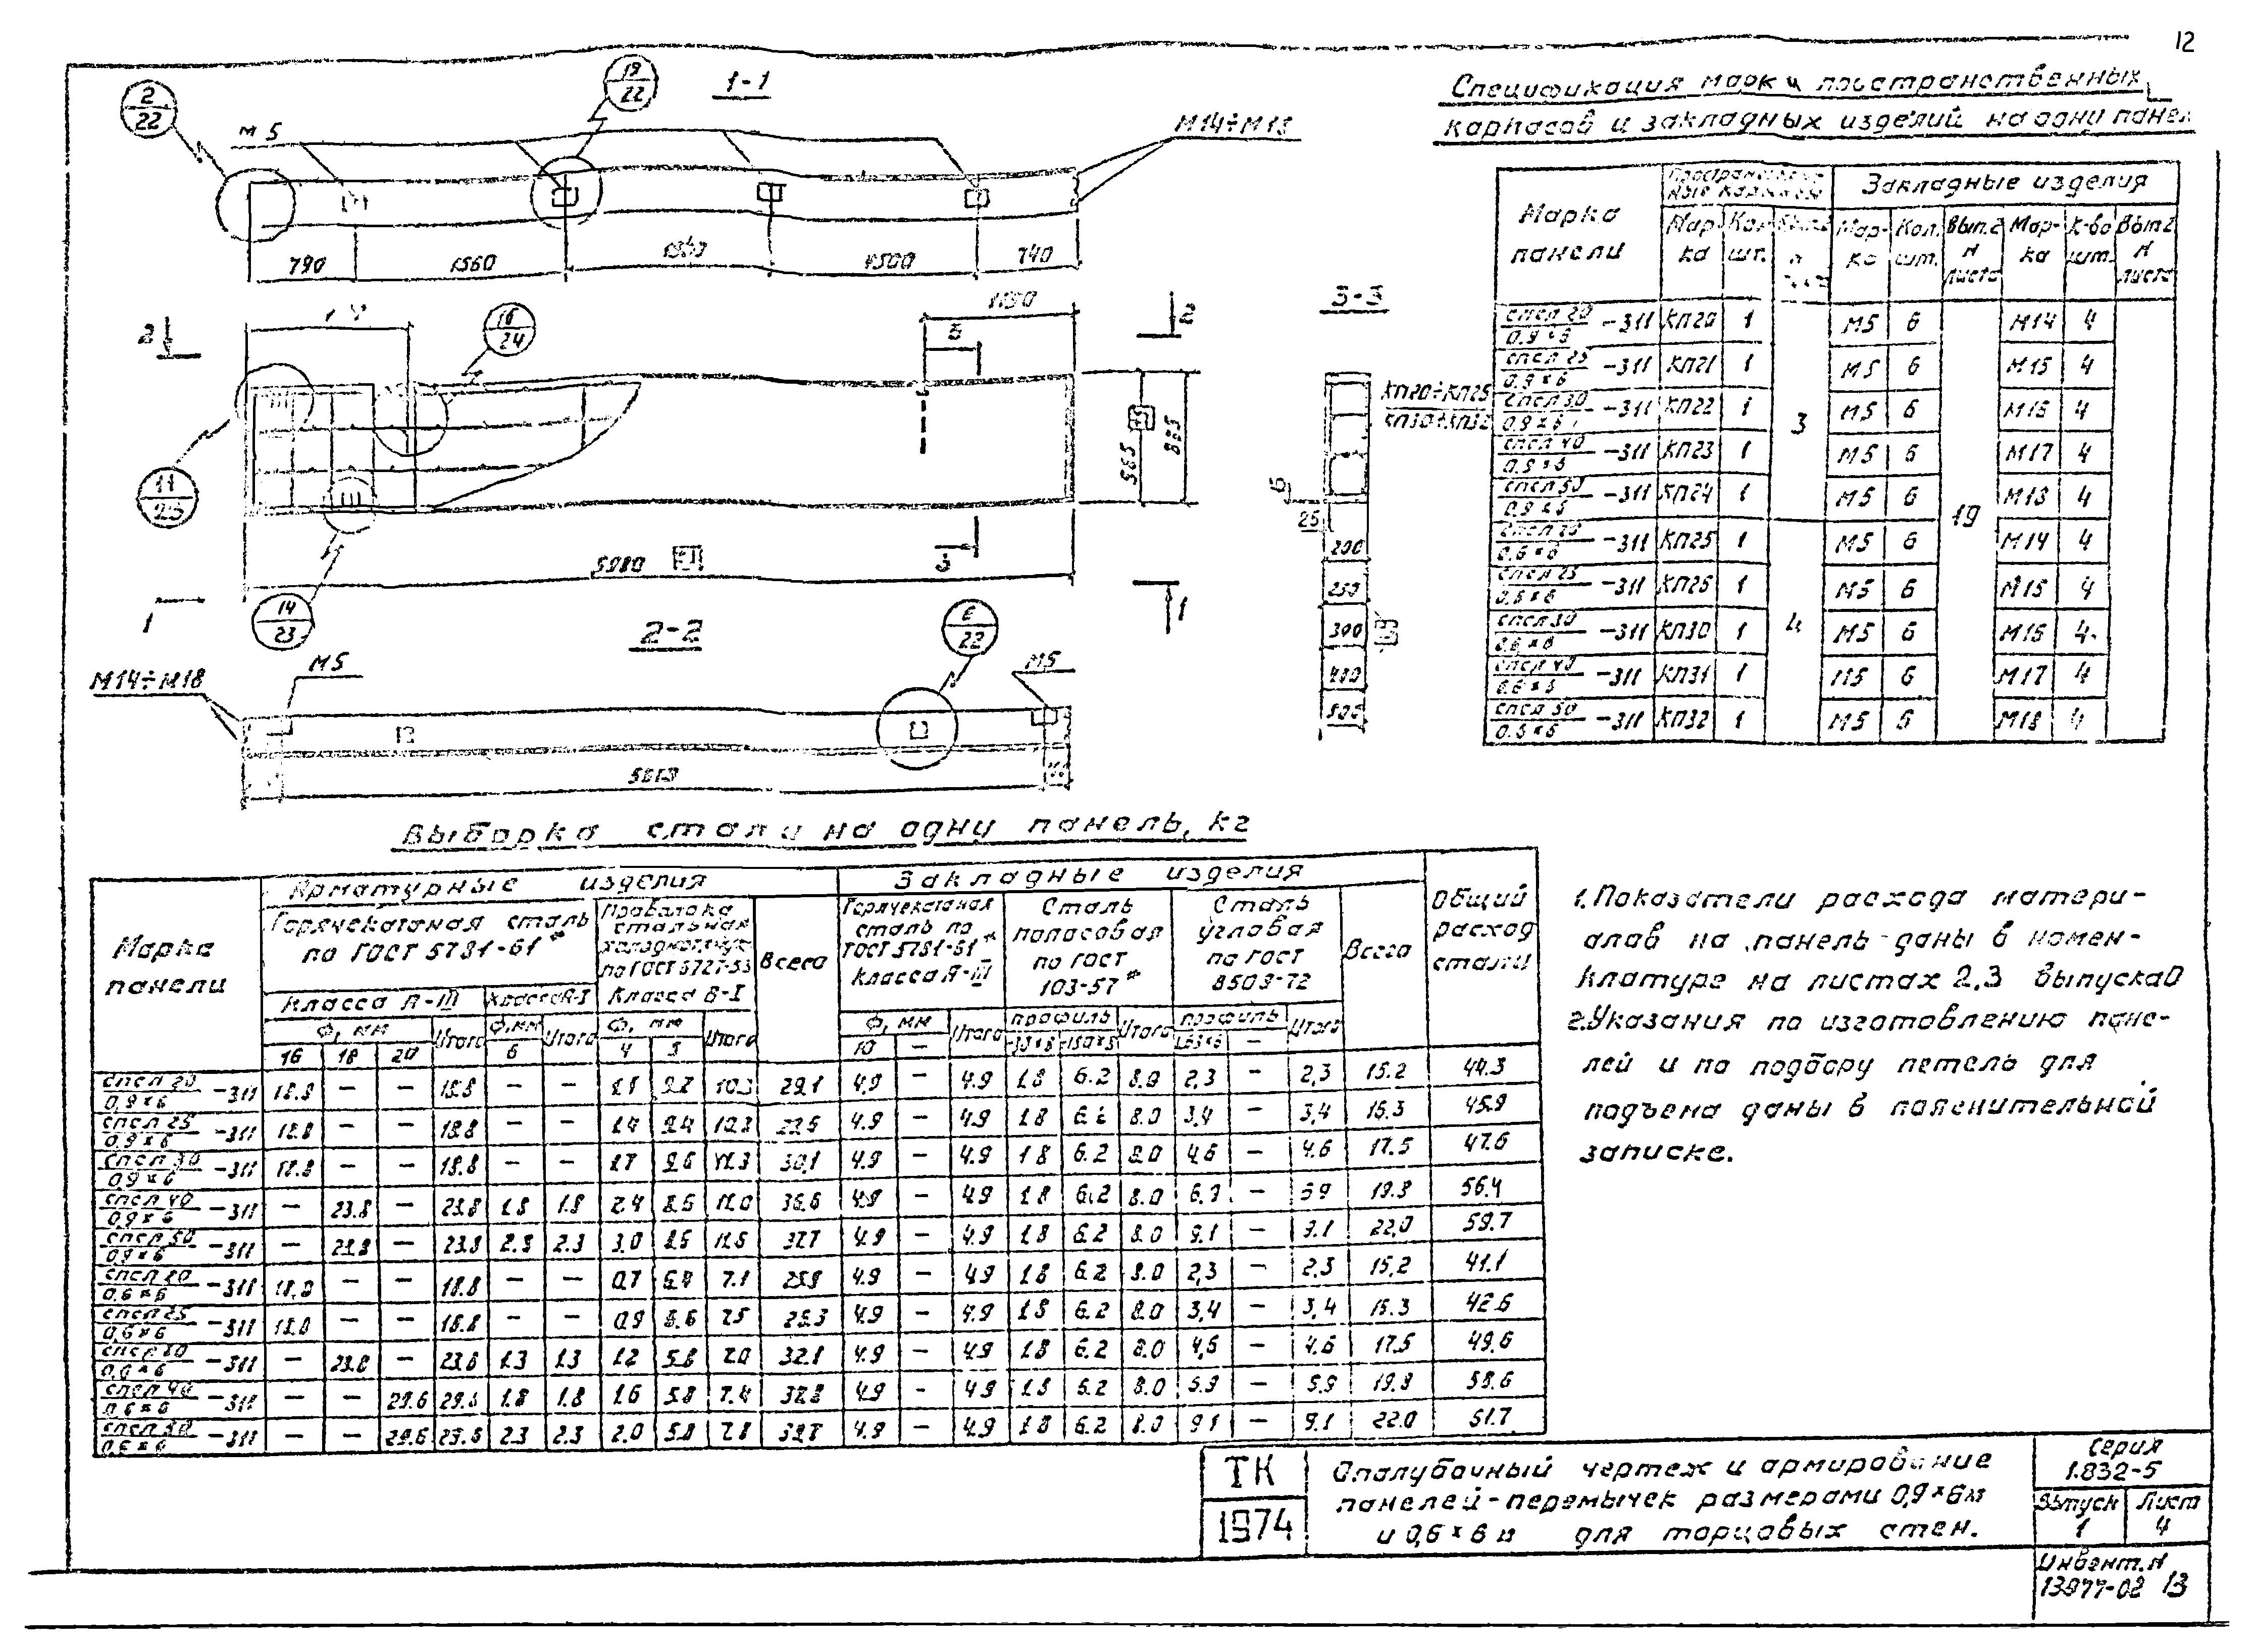 12
Спецификация марки пространственных
каркасов и закладных изделий на одну панел
1-1
2
22
19
22
М5
М14÷М18
790
1560
1500
740
16
24
2
2
3
3
1190
11
23
14
23
5980
565
885
1
1
3-3
КП20÷КП25
КП30÷КП32
25
200
250
300
400
500
2-2
22
М14÷М18
М5
М5
Марка панели
Пространствен-
ные каркасы
Закладные изделия
Мар-ка
Кол. шт.
Мар-ка
Кол. шт.
Вып.2 N листа
Мар-ка
К-во шт.
Вып.2 N листа
спсл 20 / 0,9×6 -311 КП20 1 М5 6 М14 4
спсл 25 / 0,9×6 -311 КП21 1 М5 6 М15 4
спсл 30 / 0,9×6 -311 КП22 1 3 М5 6 М16 4
спсл 40 / 0,9×6 -311 КП23 1 М5 6 М17 4
спсл 50 / 0,9×6 -311 КП24 1 М5 6 19 М18 4
спсл 20 / 0,6×6 -311 КП25 1 М5 6 М14 4
спсл 25 / 0,6×6 -311 1 М5 6 М15 4
спсл 30 / 0,6×6 -311 КП30 1 4 М5 6 М16 4
спсл 40 / 0,6×6 -311 КП31 1 М5 6 М17 4
спсл 50 / 0,6×6 -311 КП32 1 М5 6 М18 4
Выборка стали на одну панель, кг
Марка панели
Арматурные изделия
Закладные изделия
Общий расход стали
Горячекатаная сталь по ГОСТ 5781-61*
Проволока стальная холоднотянутая по ГОСТ 6727-53
Всего
Горячекатаная сталь по ГОСТ 5781-61* класса А-III
Сталь полосовая по ГОСТ 103-57*
Сталь угловая по ГОСТ 8509-72
Всего
Класса А-III
Класса А-I
Класса В-I
Ф, мм Итого Ф, мм Итого Ф, мм Итого Ф, мм Итого профиль Итого профиль Итого
16 18 20 6 4 5 10 —
спсл 20 / 0,9×6 -311 18.8 — — 18.8 — — 29.1 4.9 — 4.9 1.8 6.2 8.0 2,3 — 2,3 15.2 44.3
спсл 25 / 0,9×6 -311 18.8 — — 18.8 — — 1.4 9.4 4.9 — 4.9 1.8 6.2 8.0 3,4 — 3,4 16.3 45.9
спсл 30 / 0,9×6 -311 18.8 — — 18.8 — — 1.7 9.6 11.3 30,1 4.9 — 4.9 1.8 6.2 8.0 4.6 — 4.6 17.5 47.6
спсл 40 / 0,9×6 -311 — 23.8 — 23.8 1.8 1.8 2.4 36.6 4.9 — 4.9 1.8 6.2 8.0 — 5.9 19.8 56.4
спсл 50 / 0,9×6 -311 — 23.8 — 23.8 2.3 2.3 3.0 37.7 4.9 — 4.9 1.8 6.2 8.0 9.1 — 9.1 22,0 59.7
спсл 20 / 0,6×6 -311 18.8 — — 18.8 — — 0.7 6.4 7.1 25.9 4.9 — 4.9 1.8 6.2 8.0 2,3 — 2,3 15,2 41.1
спсл 25 / 0,6×6 -311 18.8 — — 18.8 — — 0.9 6.6 7.5 26.3 4.9 — 4.9 1.8 6.2 8.0 3,4 — 3,4 16.3 42.6
спсл 30 / 0,6×6 -311 — 23.8 — 23.8 1.3 1.3 1.2 5.8 7.0 32.1 4.9 — 4.9 1.8 6.2 8.0 4,6 — 4.6 17.5 49.6
спсл 40 / 0,6×6 -311 — — 29.6 29.6 1.8 1.8 1.6 5.8 7.4 38.8 4.9 — 4.9 1.8 6.2 8.0 5.9 — 5.9 58.6
спсл 50 / 0,6×6 -311 — — 29.6 29.6 2.3 2.3 2.0 5.8 7.8 39.7 4.9 — 4.9 1.8 6.2 8.0 9.1 — 9.1 22.0 61.7
1. Показатели расхода матери-
алов на панель даны в номен-
клатуре на листах 2,3 выпуска 0
2. Указания по изготовлению пане-
лей и по подбору петель для
подъема даны в пояснительной
записке.
ТК
1974
Опалубочный чертеж и армирование
панелей-перемычек размерами 0,9×6м
и 0,6×6м для торцовых стен.
Серия
1.832-5
Выпуск Лист
1 4
Инвент. N
13977-02 13